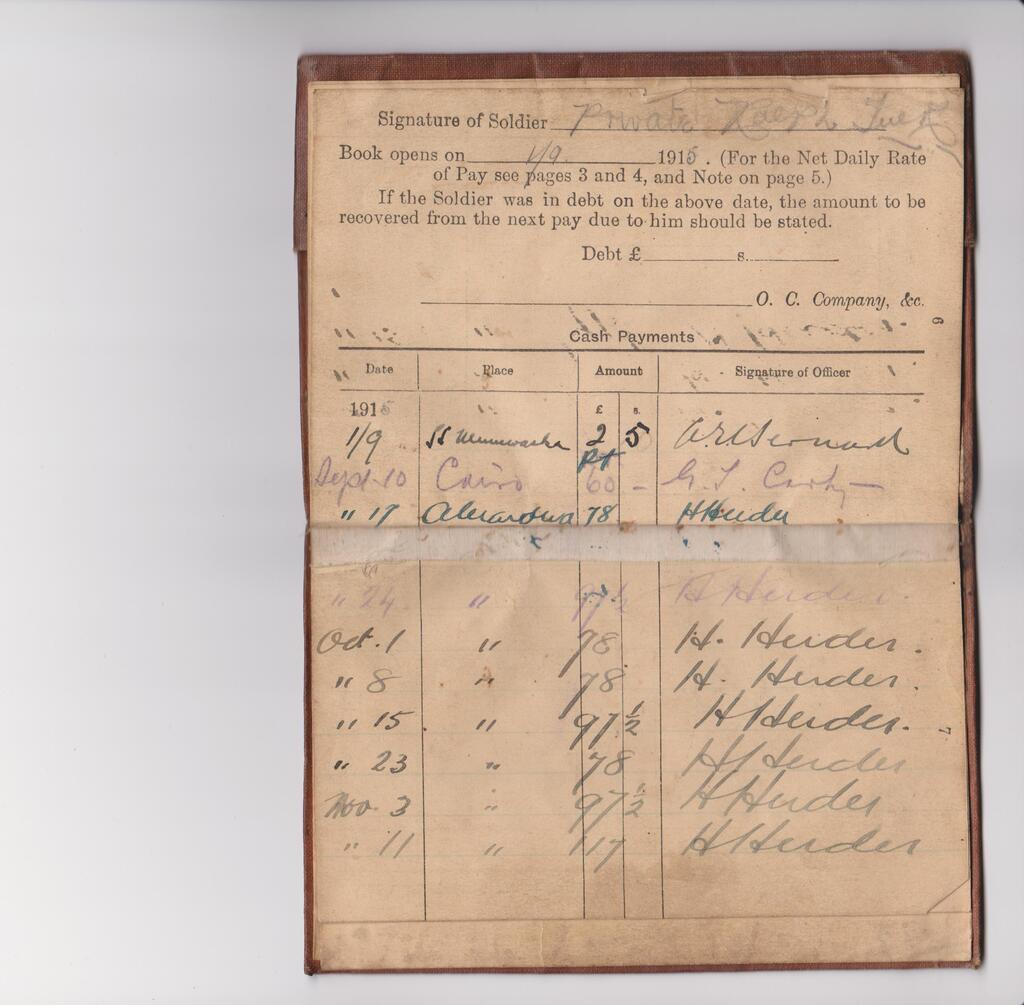 Signature of Soldier Private Ralph
Book opens on 1/9 1915. (For the Net Daily Rate
of Pay see pages 3 and 4, and Note on page 5.)
If the Soldier was in debt on the above date, the amount to be
recovered from the next pay due to him should be stated.
Debt £ s.
O. C. Company, &c.
6
Cash Payments
Date Place Amount Signature of Officer
1915 £ s.
1/9 SS 2 5
PT
Sept 10 Cairo 60 – G. T.
" 17 Alexandria 78 H Herder
" 24 " 97 ½ H Herder.
Oct. 1 " 78 H. Herder.
" 8 " 78 H. Herder.
" 15 " 97 ½ H Herder.
7
" 23 " 78 H Herder
Nov. 3 " 97 ½ H Herder
" 11 " 117 H Herder